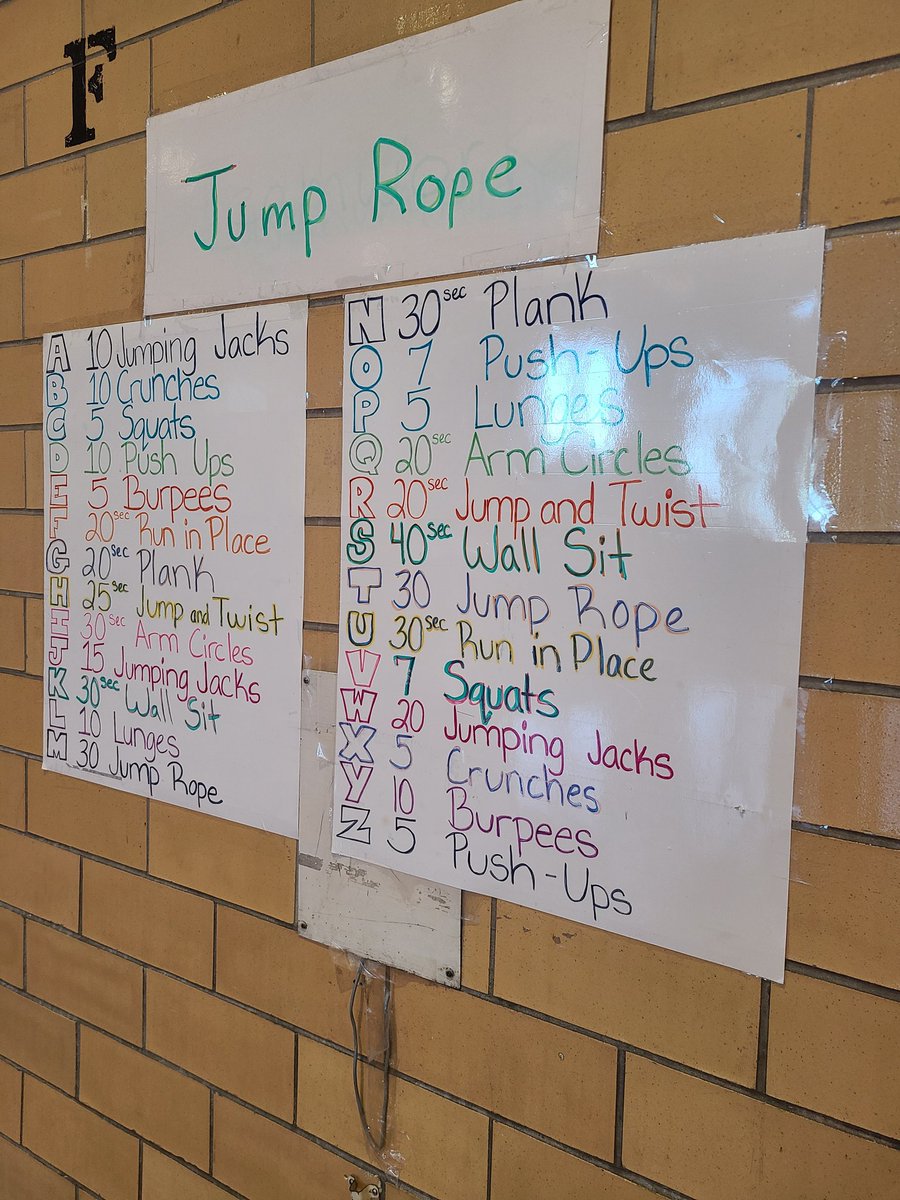 F
Jump Rope
A 10 Jumping Jacks
B 10 Crunches
C 5 Squats
D 10 Push Ups
E 5 Burpees
F 20 sec Run in Place
G 20 sec Plank
H 25 sec Jump and Twist
I 30 sec Arm Circles
J 15 Jumping Jacks
K 30 sec Wall Sit
L 10 Lunges
M 30 Jump Rope
N 30 sec Plank
O 7 Push-Ups
P 5 Lunges
Q 20 sec Arm Circles
R 20 sec Jump and Twist
S 40 sec Wall Sit
T 30 Jump Rope
U 30 sec Run in Place
V 7 Squats
W 20 Jumping Jacks
X 5 Crunches
Y 10 Burpees
Z 5 Push-Ups